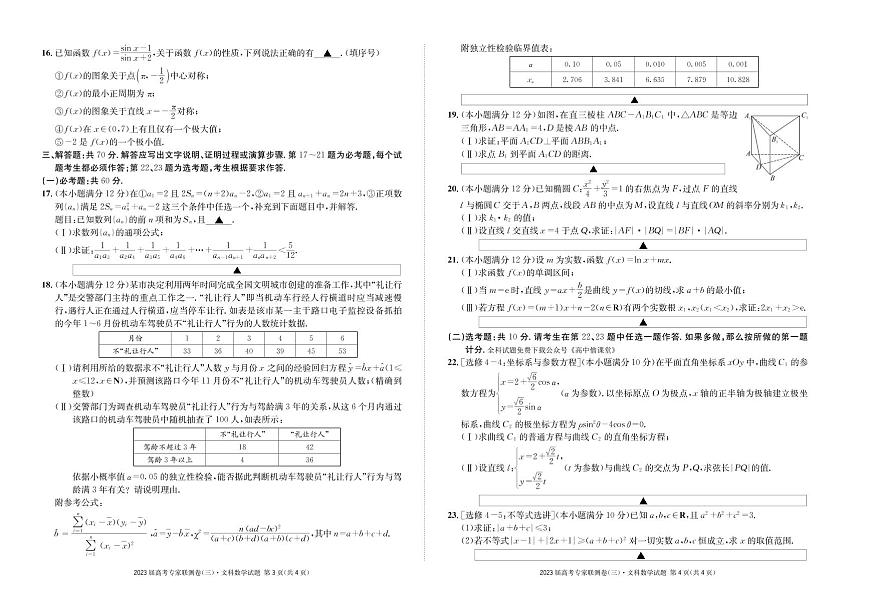 16. 已知函数 f(x)=(sin x-1)/(sin x+2),关于函数 f(x)的性质,下列说法正确的有 ▲ .(填序号)
①f(x)的图象关于点(π,-1/2)中心对称;
②f(x)的最小正周期为 π;
③f(x)的图象关于直线 x=-π/2对称;
④f(x)在 x∈(0,7)上有且仅有一个极大值;
⑤-2 是 f(x)的一个极小值.
三、解答题:共 70 分.解答应写出文字说明、证明过程或演算步骤.第 17~21 题为必考题,每个试
题考生都必须作答;第 22、23 题为选考题,考生根据要求作答.
(一)必考题:共 60 分.
17. (本小题满分 12 分)在①a₂=2 且 2Sₙ=(n+2)aₙ-2,②a₁=2 且 aₙ₊₁+aₙ=2n+3,③正项数
列{aₙ}满足 2Sₙ=aₙ²+aₙ-2 这三个条件中任选一个,补充到下面题目中,并解答.
题目:已知数列{aₙ}的前 n 项和为 Sₙ,且 ▲ .
(Ⅰ)求数列{aₙ}的通项公式;
(Ⅱ)求证:1/(a₁a₃)+1/(a₂a₄)+1/(a₃a₅)+1/(a₄a₆)+⋯+1/(aₙ₋₁aₙ₊₁)+1/(aₙaₙ₊₂)<5/12.
▲
18. (本小题满分 12 分)某市决定利用两年时间完成全国文明城市创建的准备工作,其中“礼让行
人”是交警部门主持的重点工作之一.“礼让行人”即当机动车行经人行横道时应当减速慢
行,遇行人正在通过人行横道,应当停车让行.如表是该市某一主干路口电子监控设备抓拍
的今年 1~6 月份机动车驾驶员不“礼让行人”行为的人数统计数据.
月份 1 2 3 4 5 6
不“礼让行人” 33 36 40 39 45 53
(Ⅰ)请利用所给的数据求不“礼让行人”人数 y 与月份 x 之间的经验回归方程ŷ=b̂x+â(1≤
x≤12,x∈N),并预测该路口今年 11 月份不“礼让行人”的机动车驾驶员人数;(精确到
整数)
(Ⅱ)交警部门为调查机动车驾驶员“礼让行人”行为与驾龄满 3 年的关系,从这 6 个月内通过
该路口的机动车驾驶员中随机抽查了 100 人,如表所示:
不“礼让行人” “礼让行人”
驾龄不超过 3 年 18 42
驾龄 3 年以上 4 36
依据小概率值 α=0.05 的独立性检验,能否据此判断机动车驾驶员“礼让行人”行为与驾
龄满 3 年有关?请说明理由.
附参考公式:
b̂=∑ⁿᵢ₌₁(xᵢ-x̄)(yᵢ-ȳ)/∑ⁿᵢ₌₁(xᵢ-x̄)²,â=ȳ-b̂x̄,χ²=n(ad-bc)²/((a+c)(b+d)(a+b)(c+d)),其中 n=a+b+c+d.
2023 届高考专家联测卷(三)·文科数学试题 第 3 页(共 4 页)
附独立性检验临界值表:
α 0.10 0.05 0.010 0.005 0.001
xα 2.706 3.841 6.635 7.879 10.828
▲
19. (本小题满分 12 分)如图,在直三棱柱 ABC-A₁B₁C₁ 中,△ABC 是等边
三角形,AB=AA₁=4,D 是棱 AB 的中点.
(Ⅰ)求证:平面 A₁CD⊥平面 ABB₁A₁;
(Ⅱ)求点 B₁ 到平面 A₁CD 的距离.
A₁ C₁
B₁
A C
D B
▲
20. (本小题满分 12 分)已知椭圆 C:x²/4+y²/3=1 的右焦点为 F,过点 F 的直线
l 与椭圆 C 交于 A,B 两点,线段 AB 的中点为 M,设直线 l 与直线 OM 的斜率分别为 k₁,k₂.
(Ⅰ)求 k₁·k₂ 的值;
(Ⅱ)设直线 l 交直线 x=4 于点 Q,求证:|AF|·|BQ|=|BF|·|AQ|.
▲
21. (本小题满分 12 分)设 m 为实数,函数 f(x)=ln x+mx.
(Ⅰ)求函数 f(x)的单调区间;
(Ⅱ)当 m=e 时,直线 y=ax+b/2是曲线 y=f(x)的切线,求 a+b 的最小值;
(Ⅲ)若方程 f(x)=(m+1)x+n-2(n∈R)有两个实数根 x₁,x₂(x₁<x₂),求证:2x₁+x₂>e.
▲
(二)选考题:共 10 分.请考生在第 22、23 题中任选一题作答.如果多做,那么按所做的第一题
计分. 全科试题免费下载公众号《高中僧课堂》
22. [选修 4-4:坐标系与参数方程](本小题满分 10 分)在平面直角坐标系 xOy 中,曲线 C₁ 的参
数方程为{x=2+√6/2 cos α, y=√6/2 sin α (α 为参数).以坐标原点 O 为极点,x 轴的正半轴为极轴建立极坐
标系,曲线 C₂ 的极坐标方程为 ρsin²θ-4cos θ=0.
(Ⅰ)求曲线 C₁ 的普通方程与曲线 C₂ 的直角坐标方程;
(Ⅱ)设直线 l:{x=2+√2/2 t, y=√2/2 t (t 为参数)与曲线 C₂ 的交点为 P,Q,求弦长|PQ|的值.
▲
23. [选修 4-5:不等式选讲](本小题满分 10 分)已知 a,b,c∈R,且 a²+b²+c²=3.
(1)求证:|a+b+c|≤3;
(2)若不等式|x-1|+|2x+1|≥(a+b+c)² 对一切实数 a,b,c 恒成立,求 x 的取值范围.
▲
2023 届高考专家联测卷(三)·文科数学试题 第 4 页(共 4 页)